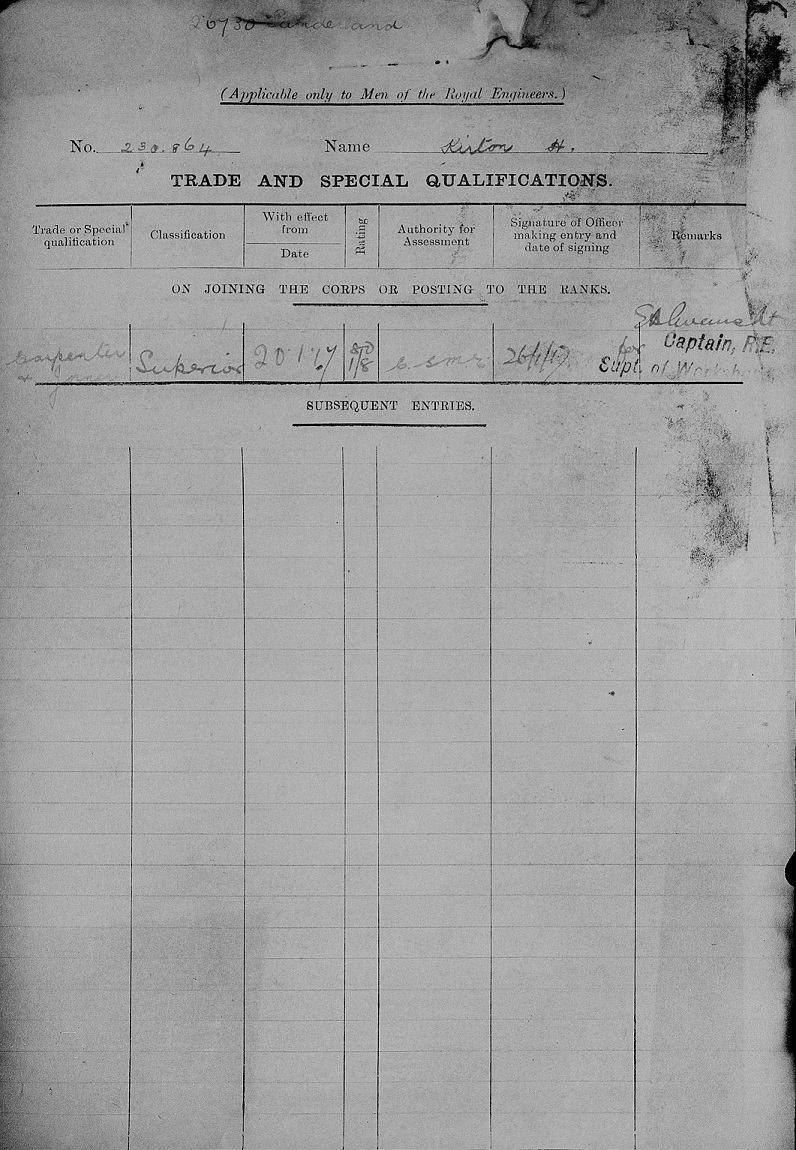 26730 Sunderland
(Applicable only to Men of the Royal Engineers.)
No. 230.864 Name Kirton H.
TRADE AND SPECIAL QUALIFICATIONS.
Trade or Special qualification
Classification
With effect from Date
Rating
Authority for Assessment
Signature of Officer making entry and date of signing
Remarks
ON JOINING THE CORPS OR POSTING TO THE RANKS.
Carpenter
+ Superior 20.1.17 1/8 26/1/17
for Captain, R.E.
Supt. of
SUBSEQUENT ENTRIES.